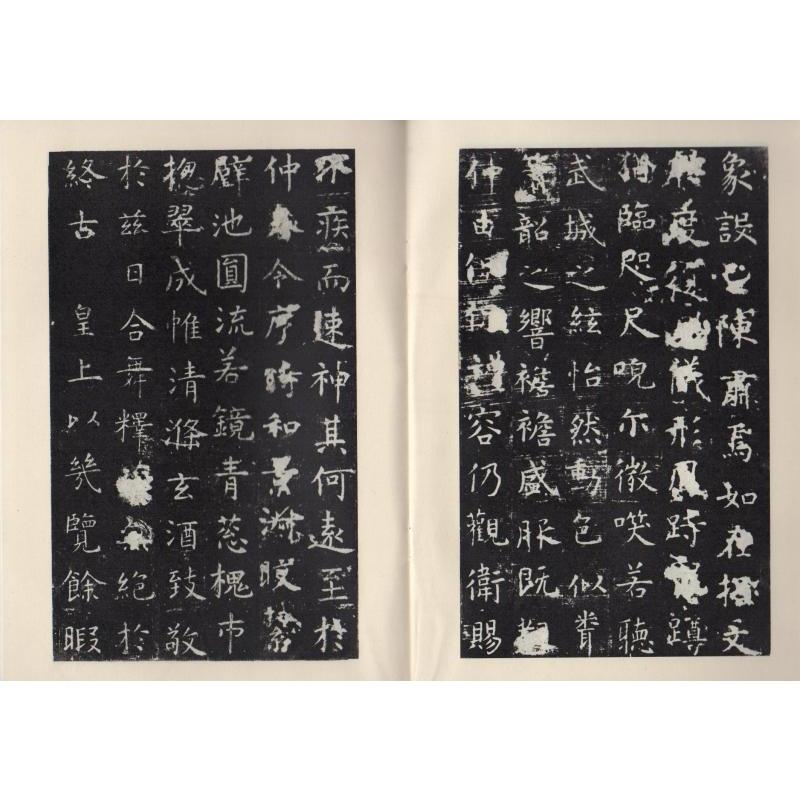 象設已陳肅焉如在握文
度復儀形鳳跱蹲
猶臨咫尺尔微咲若聽
武城之絃怡然動色似
韶之響襜襜盛服既
仲由容仍觀衛賜
不疾而速神其何遠至於
仲春令序時和景淑
璧池圓流若鏡青葱槐市
揔翠成帷清滌玄酒致敬
於茲日合舞釋絕於
終古 皇上以幾覽餘暇